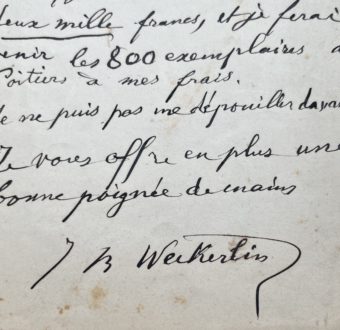 deux mille francs, et je ferai
venir les 800 exemplaires à
Poitiers à mes frais.
Je ne puis pas me dépouiller davan
Je vous offre en plus une
bonne poignée de mains
J B Weckerlin